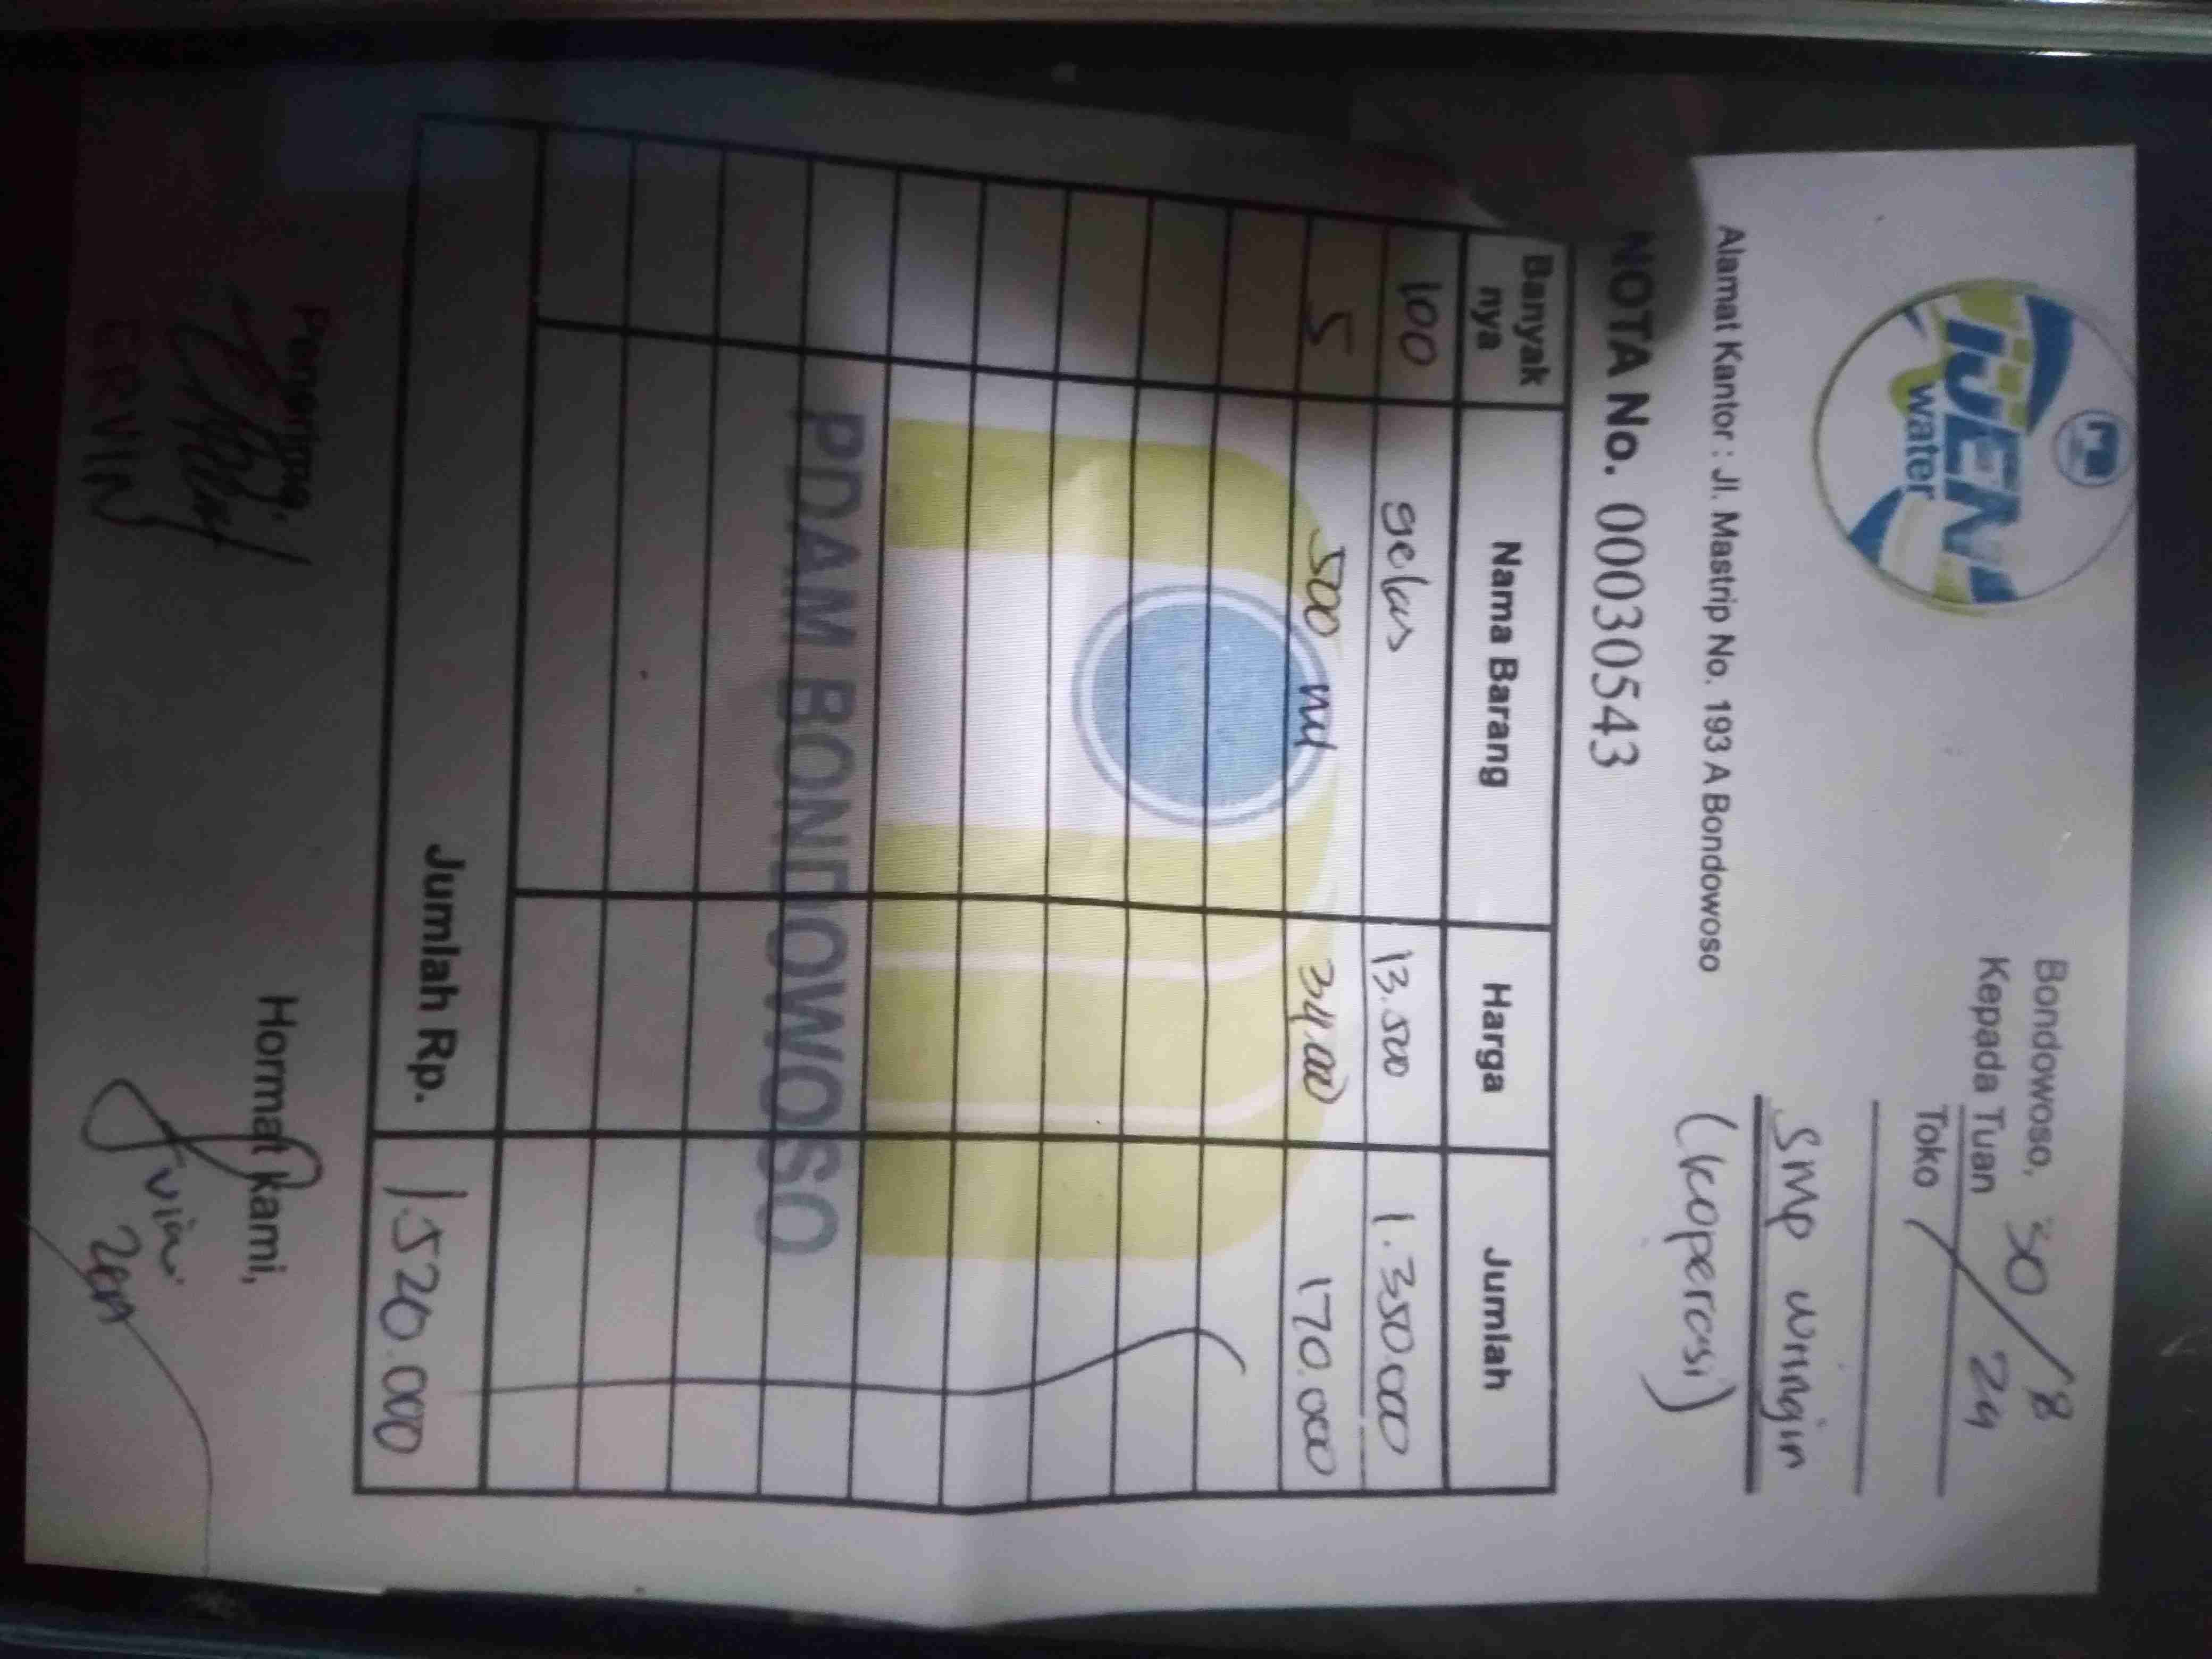 IJEN
water
Bondowoso, 30/8
Kepada Tuan 24
Toko
SMP wringin
(koperasi)
Alamat Kantor : Jl. Mastrip No. 193 A Bondowoso
NOTA No. 00030543
Banyak nya Nama Barang Harga Jumlah
100 gelas 13.500 1.350.000
5 500 ml 34.000 170.000
PDAM BONDOWOSO
Jumlah Rp. 1.520.000
Penerima, Hormat kami,
ERVIN